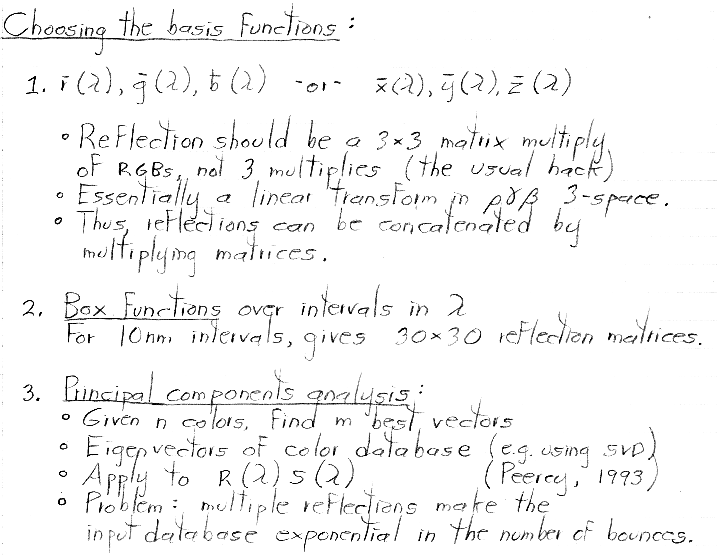 Choosing the basis functions :
1. r̄(λ), ḡ(λ), b̄(λ) -or- x̄(λ), ȳ(λ), z̄(λ)
• Reflection should be a 3×3 matrix multiply
of RGBs, not 3 multiplies (the usual hack)
• Essentially a linear transform in ργβ 3-space.
• Thus, reflections can be concatenated by
multiplying matrices.
2. Box functions over intervals in λ
For 10nm intervals, gives 30×30 reflection matrices.
3. Principal components analysis :
• Given n colors, find m best vectors
• Eigenvectors of color database (e.g. using SVD)
• Apply to R(λ)S(λ) (Peercy, 1993)
• Problem : multiple reflections make the
input database exponential in the number of bounces.